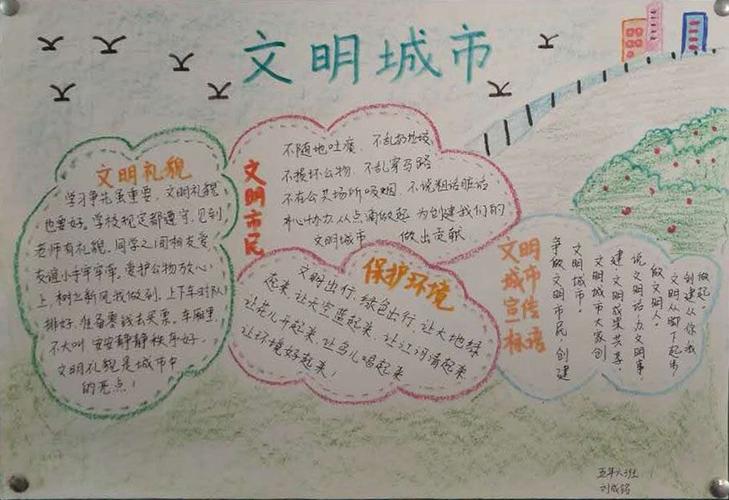 文明城市
文明礼貌
学习争先虽重要，文明礼貌
也要好。学校规定都遵守，见到
老师有礼貌。同学之间相友爱
友谊小手牵牵牵。爱护公物放心
上，树立新风我做到。上下车时队
排好，准备零钱去买票。车厢里
不大叫 安安静静秩序好。
文明礼貌是城市中
的亮点！
文明市民
不随地吐痰 不乱扔垃圾
不损坏公物 不乱穿马路
不在公共场所吸烟 不说粗话脏话
从点滴做起 为创建我们的
文明城市 做出贡献
保护环境
文明出行，绿色出行，让大地绿
起来，让天空蓝起来，让江河清起来
让花儿开起来，让鸟儿唱起来
让环境好起来！
文明
城市
宣传
标语
争做文明市民 创建
文明城市。
文明城市大家创
建 文明成果共享。
说文明话 办文明事，
做文明人。
文明从脚下起步
创建从你我
做起。
五年六班
刘成铭